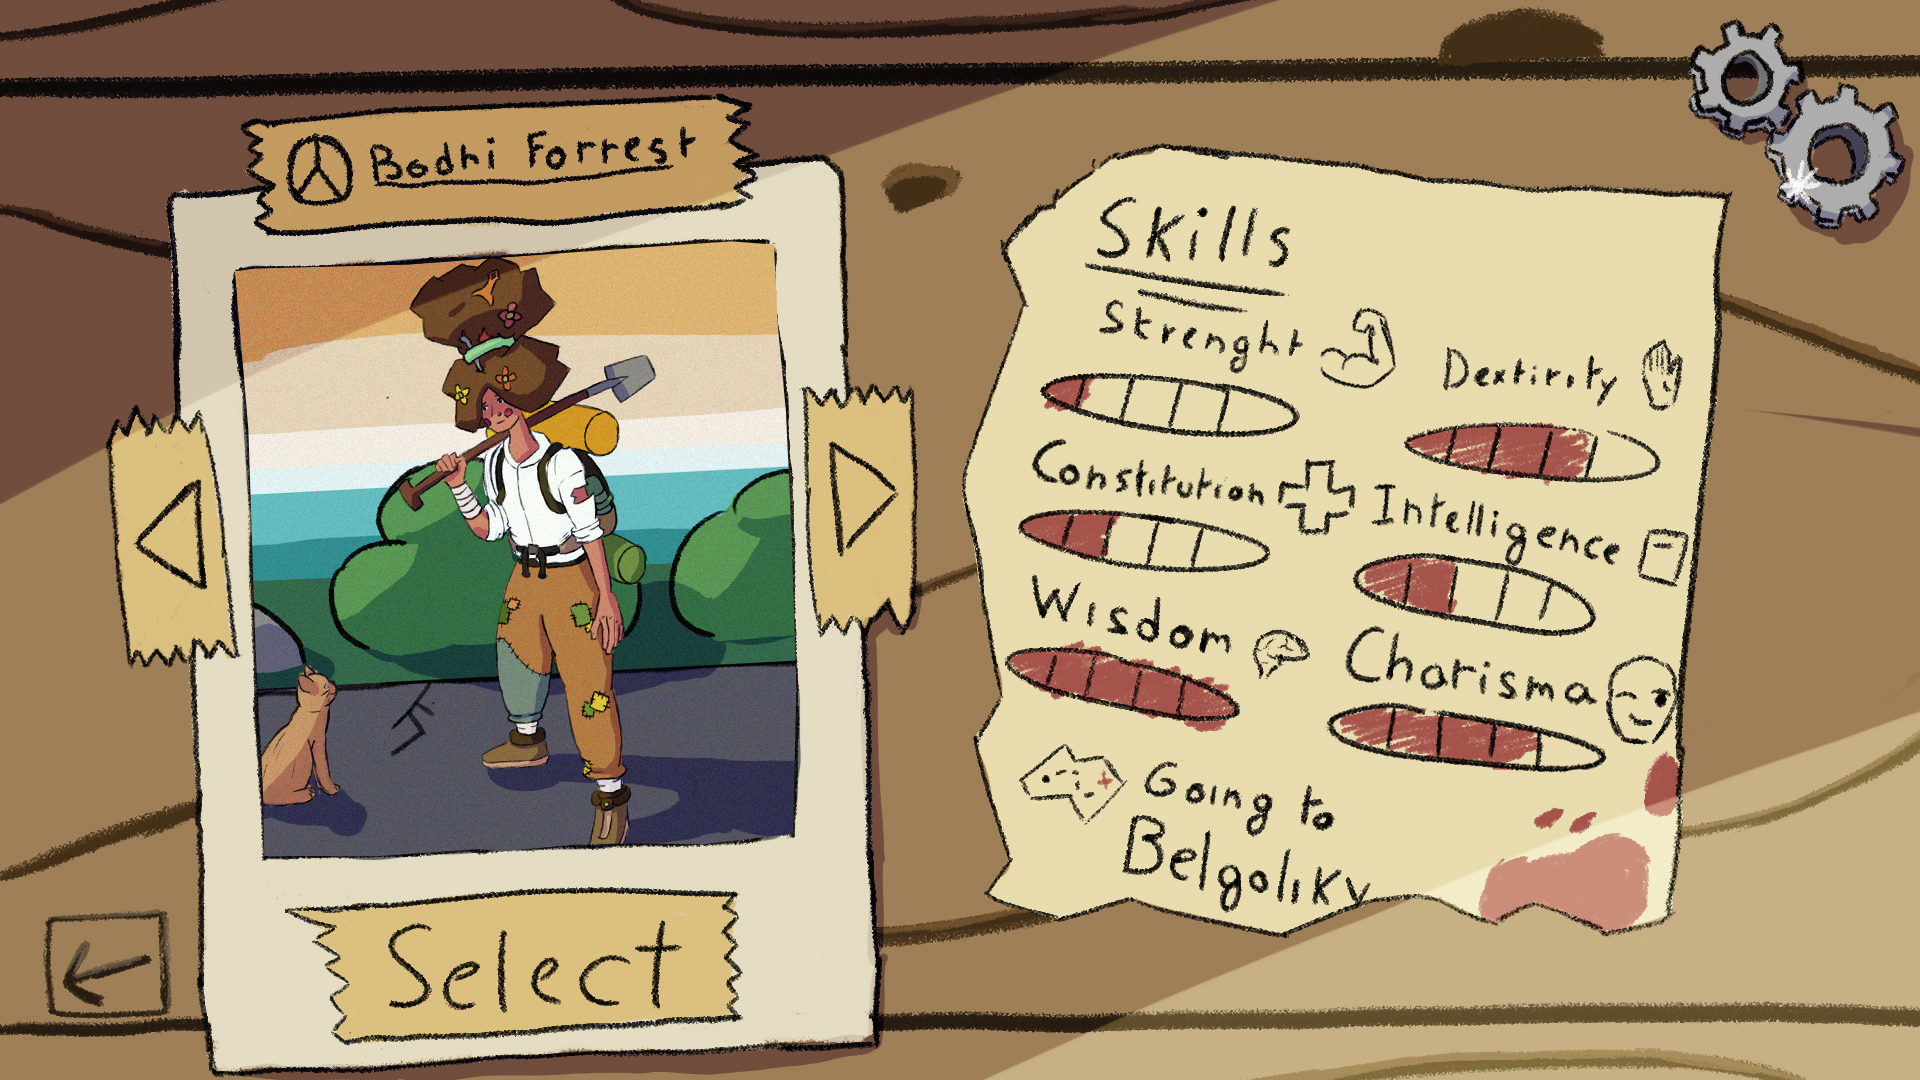 Bodhi Forrest
Select
Skills
Strenght
Dextirity
Constitution
Intelligence
Wisdom
Charisma
Going to
Belgoliky